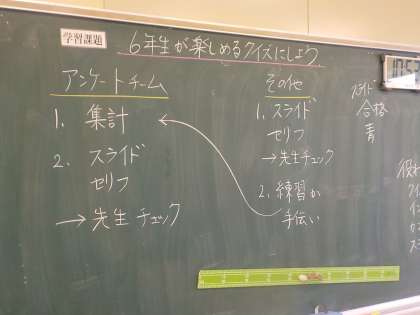 学習課題
6年生が楽しめるクイズにしよう
アンケートチーム
1. 集計
2. スライド
セリフ
→先生チェック
その他
1. スライド
セリフ
→先生チェック
2. 練習か
手伝い
スライド
合格
青